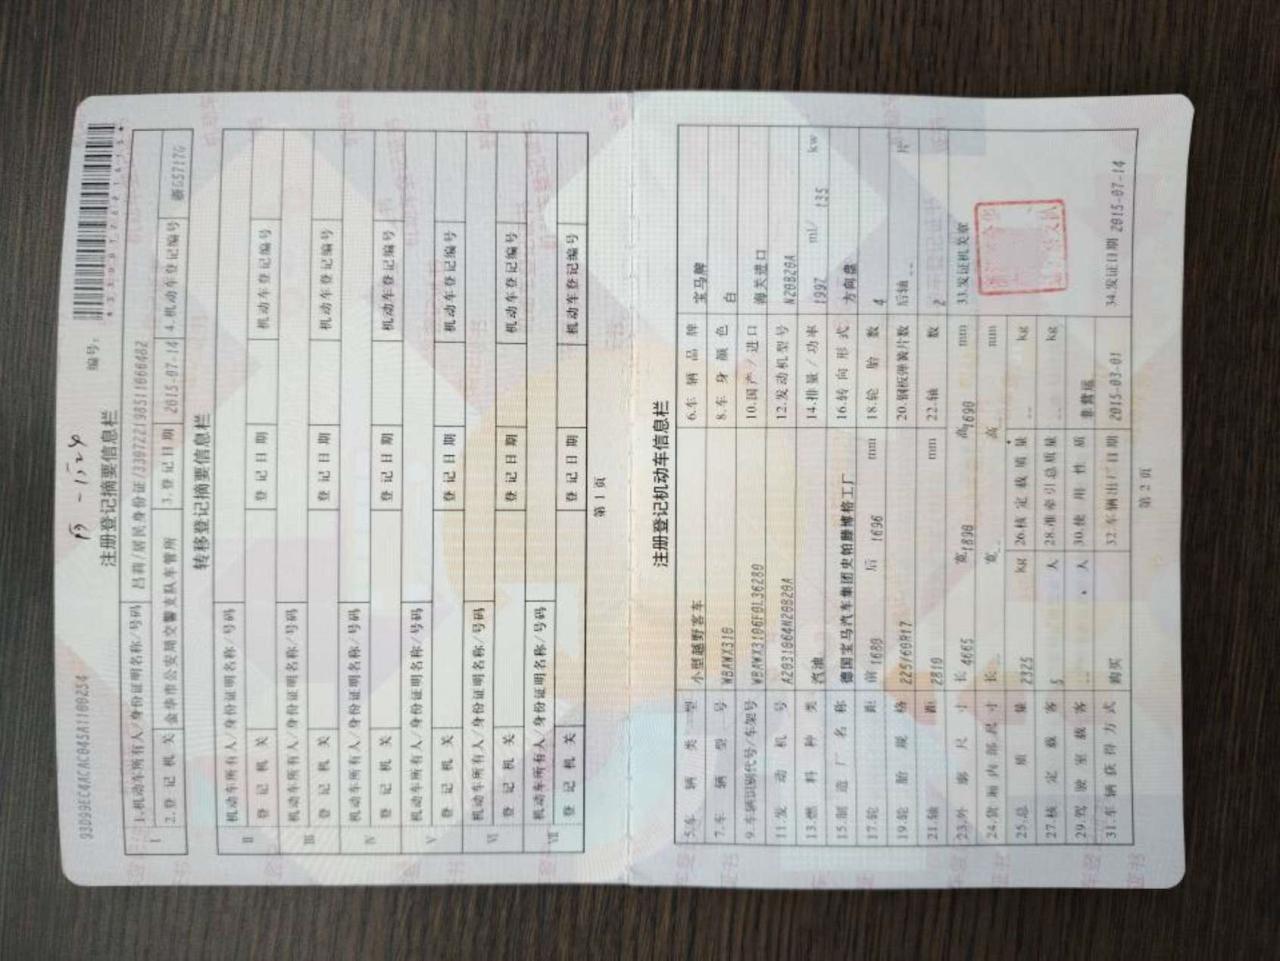 93D99EC4ACAC045A1100254
编号:
注册登记摘要信息栏
I
1.机动车所有人/身份证明名称/号码 吕莉/居民身份证/330722198511066482
2.登记机关 金华市公安局交警支队车管所 3.登记日期 2015-07-14 4.机动车登记编号
转移登记摘要信息栏
II
机动车所有人/身份证明名称/号码
登记机关 登记日期 机动车登记编号
III
机动车所有人/身份证明名称/号码
登记机关 登记日期 机动车登记编号
IV
机动车所有人/身份证明名称/号码
登记机关 登记日期 机动车登记编号
V
机动车所有人/身份证明名称/号码
登记机关 登记日期 机动车登记编号
VI
机动车所有人/身份证明名称/号码
登记机关 登记日期 机动车登记编号
VII
机动车所有人/身份证明名称/号码
登记机关 登记日期 机动车登记编号
第1页
注册登记机动车信息栏
5.车辆类型 小型越野客车 6.车辆品牌 宝马牌
7.车辆型号 WBAWX310 8.车身颜色 白
9.车辆识别代号/车架号 WBAWX3106F0L36280 10.国产/进口 海关进口
11.发动机号 A2031064N20B20A 12.发动机型号 N20B20A
13.燃料种类 汽油 14.排量/功率 1997 ml/ 135 kw
15.制造厂名称 德国宝马汽车集团史帕滕博格工厂 16.转向形式 方向盘
17.轮距 前 1680 后 1696 mm 18.轮胎数 4
19.轮胎规格 225/60R17 20.钢板弹簧片数 后轴 -- 片
21.轴距 2810 mm 22.轴数 2
23.外廓尺寸 长 4665 宽 1890 高 1690 mm 33.发证机关章
24.货厢内部尺寸 长 -- 宽 -- 高 -- mm
25.总质量 2325 kg 26.核定载质量 -- kg
27.核定载客 5 人 28.准牵引总质量 -- kg
29.驾驶室载客 -- 人 30.使用性质 非营运
31.车辆获得方式 购买 32.车辆出厂日期 2015-03-01 34.发证日期 2015-07-14
第2页